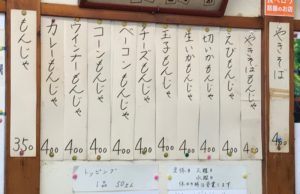 やきそば 400
やきそばもんじゃ 400
えびもんじゃ 400
切いかもんじゃ 400
生いかもんじゃ 400
玉子もんじゃ 400
チーズもんじゃ 400
ベーコンもんじゃ 400
コーンもんじゃ 400
ウインナーもんじゃ 400
カレーもんじゃ 400
もんじゃ 350
トッピング
1品 50えん
定休日 火曜日
水曜日